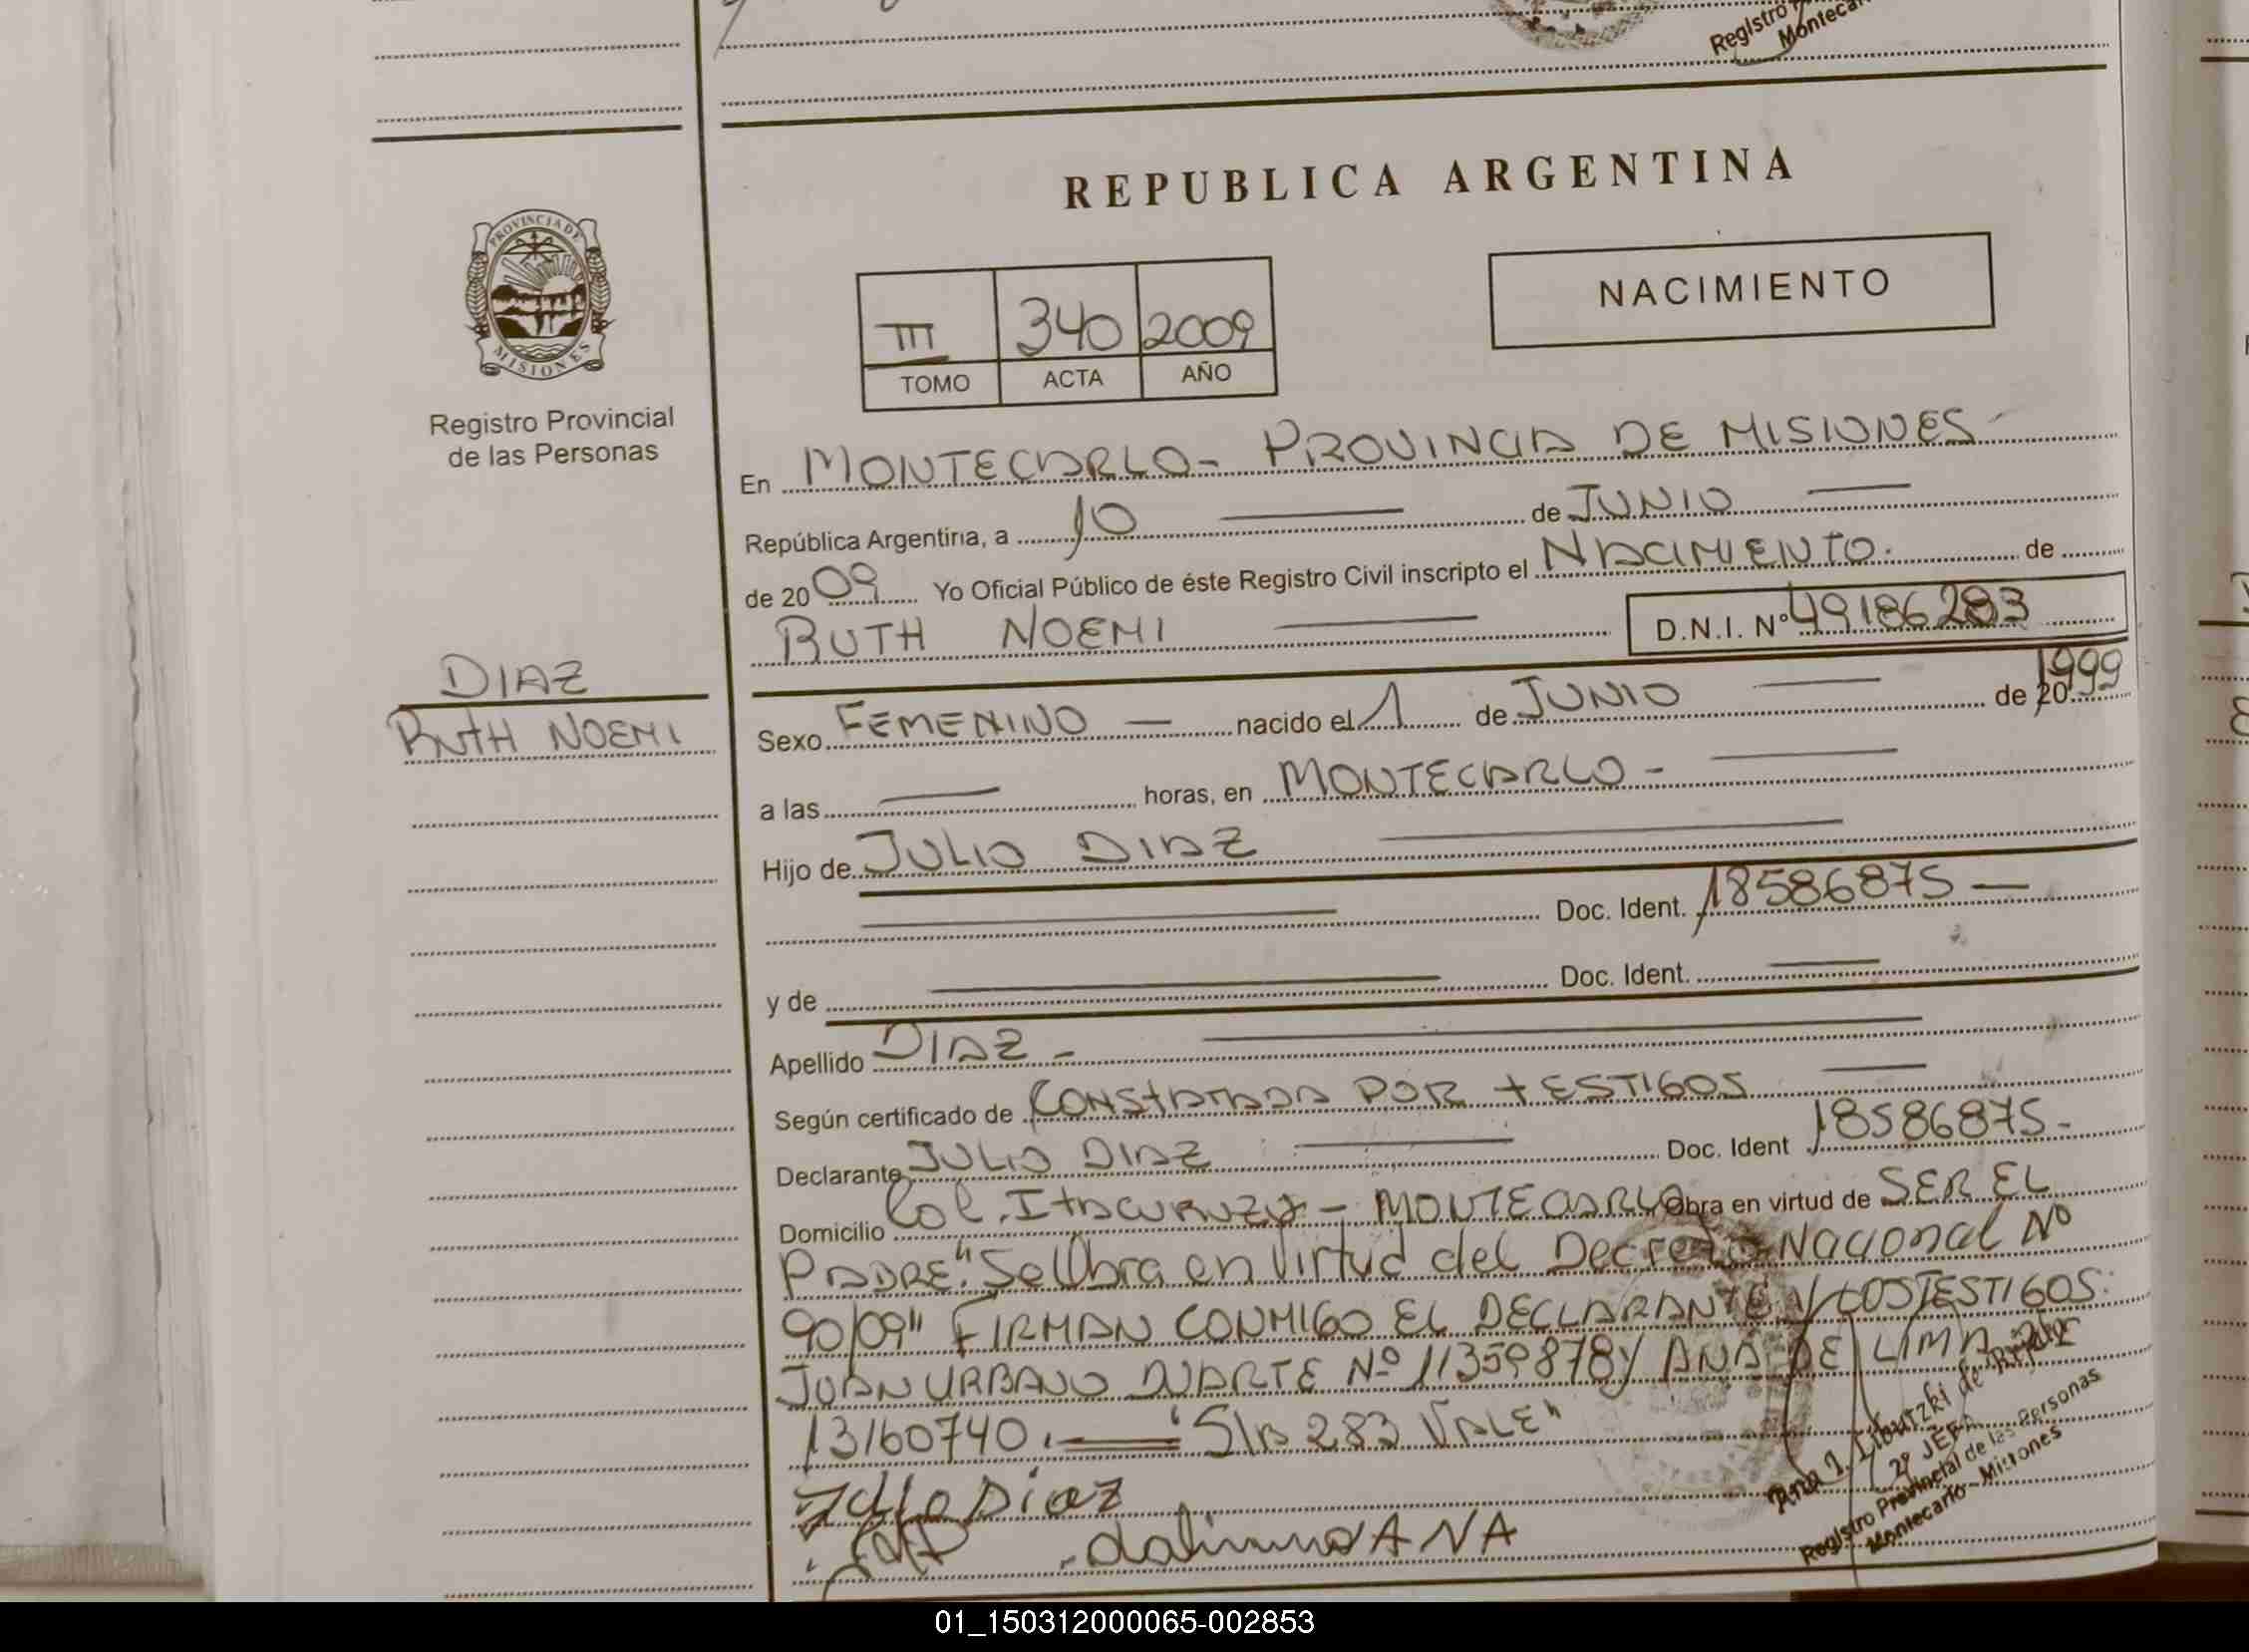 Registro
Montecar
REPUBLICA ARGENTINA
PROVINCIA DE
MISIONES
Registro Provincial
de las Personas
III 340 2009
TOMO ACTA AÑO
NACIMIENTO
En MONTECARLO - PROVINCIA DE MISIONES -
República Argentina, a 10 — de JUNIO —
de 2009 Yo Oficial Público de éste Registro Civil inscripto el NACIMIENTO. de
RUTH NOEMI — D.N.I. Nº 49186283
DIAZ
RUTH NOEMI
Sexo FEMENINO — nacido el 1 de JUNIO — de 20 1999
a las — horas, en MONTECARLO - —
Hijo de JULIO DIAZ —
— Doc. Ident. 18586875 —
y de — Doc. Ident. —
Apellido DIAZ - —
Según certificado de CONSTATADA POR TESTIGOS —
Declarante JULIO DIAZ — Doc. Ident 18586875 -
Domicilio Col. ITACURUZY - MONTECARLO Obra en virtud de SER EL
PADRE. "Se Obra en Virtud del Decreto Nacional Nº
90/09" FIRMAN CONMIGO EL DECLARANTE Y LOS TESTIGOS:
JUAN URBANO DUARTE Nº 11359878 Y ANA DE LIMA
13160740. — "S/B 283 VALE"
Julio Diaz
dalima ANA
Ana I. Liburzki de
2º JEFA
Registro Provincial de las Personas
Montecarlo - Misiones
01_150312000065-002853